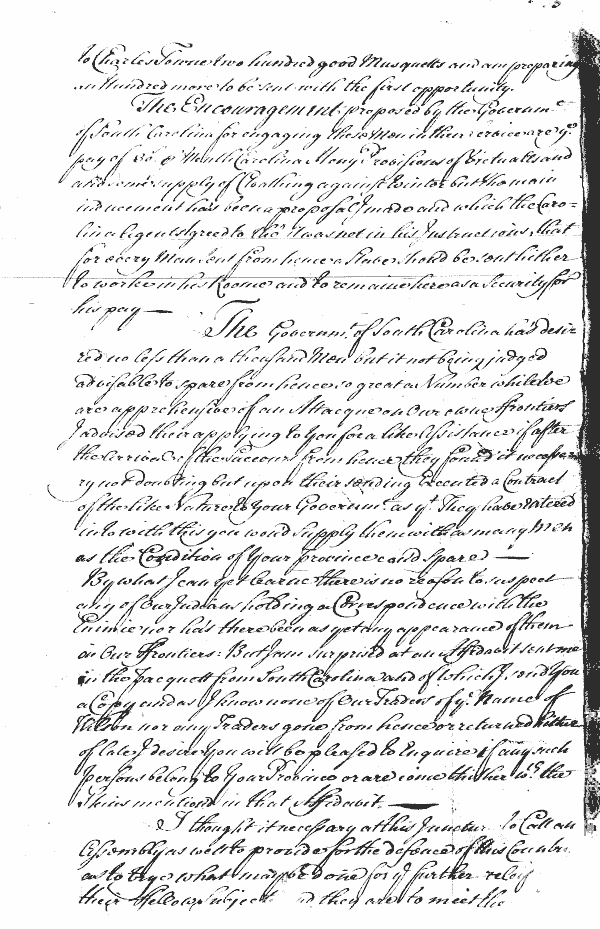 to Charles Towne two hundred good Musquetts and am preparing
an Hundred more to be sent with the first opportunity.
The Encouragement proposed by the Governmt
of South Carolina for engaging these Men in their Service are ye
pay of p Month Carolina Money Provisions of Victualls and
also some supply of Cloathing against Winter but the main
inducement has been a proposal I made and which the Caro=
lina Agents agreed to tho' it was not in his Instructions, that
for every Man sent from hence a Slave should be sent hither
to worke in his Roome and to remaine here as a Security for
his pay —
The Governmt. of South Carolina had desir
red no less than a thousand Men but it not being judged
advisable to spare from hence so great a Number while We
are apprehensive of an Attacque on Our owne Frontiers
I advised their applying to You for a like Assistance if after
the arrival of the Succours from hence they found it necessa
ry not doubting but upon their sending Executed a Contract
of the like Nature to Your Governmt. as yt. They have entered
into with this you woud supply them with as many Men
as the Condition of Your Province cand spare —
By what I can yet learne there is no reason to suspect
any of Our Indians holding a Correspondence with the
Enimie nor has there been as yet any appearance of them
on Our Frontiers: But I am surprised at an Affidavit sent me
in the Pacquett from South Carolina and of which I send You
a Copy and as I know none of Our Traders of ye. Name of
nor any Traders gone from hence or returned hither
of late I desire You will be pleased to Enquire if any such
persons belong to Your Province or are come thither wth. the
Skins mentiond in that Affidavit. —
I thought it necessary at this Juncture to Call an
Assembly as well to provide for the defence of this Countr
as to trye what may be done for ye further relei
their Fellow Subject and they are to meet the